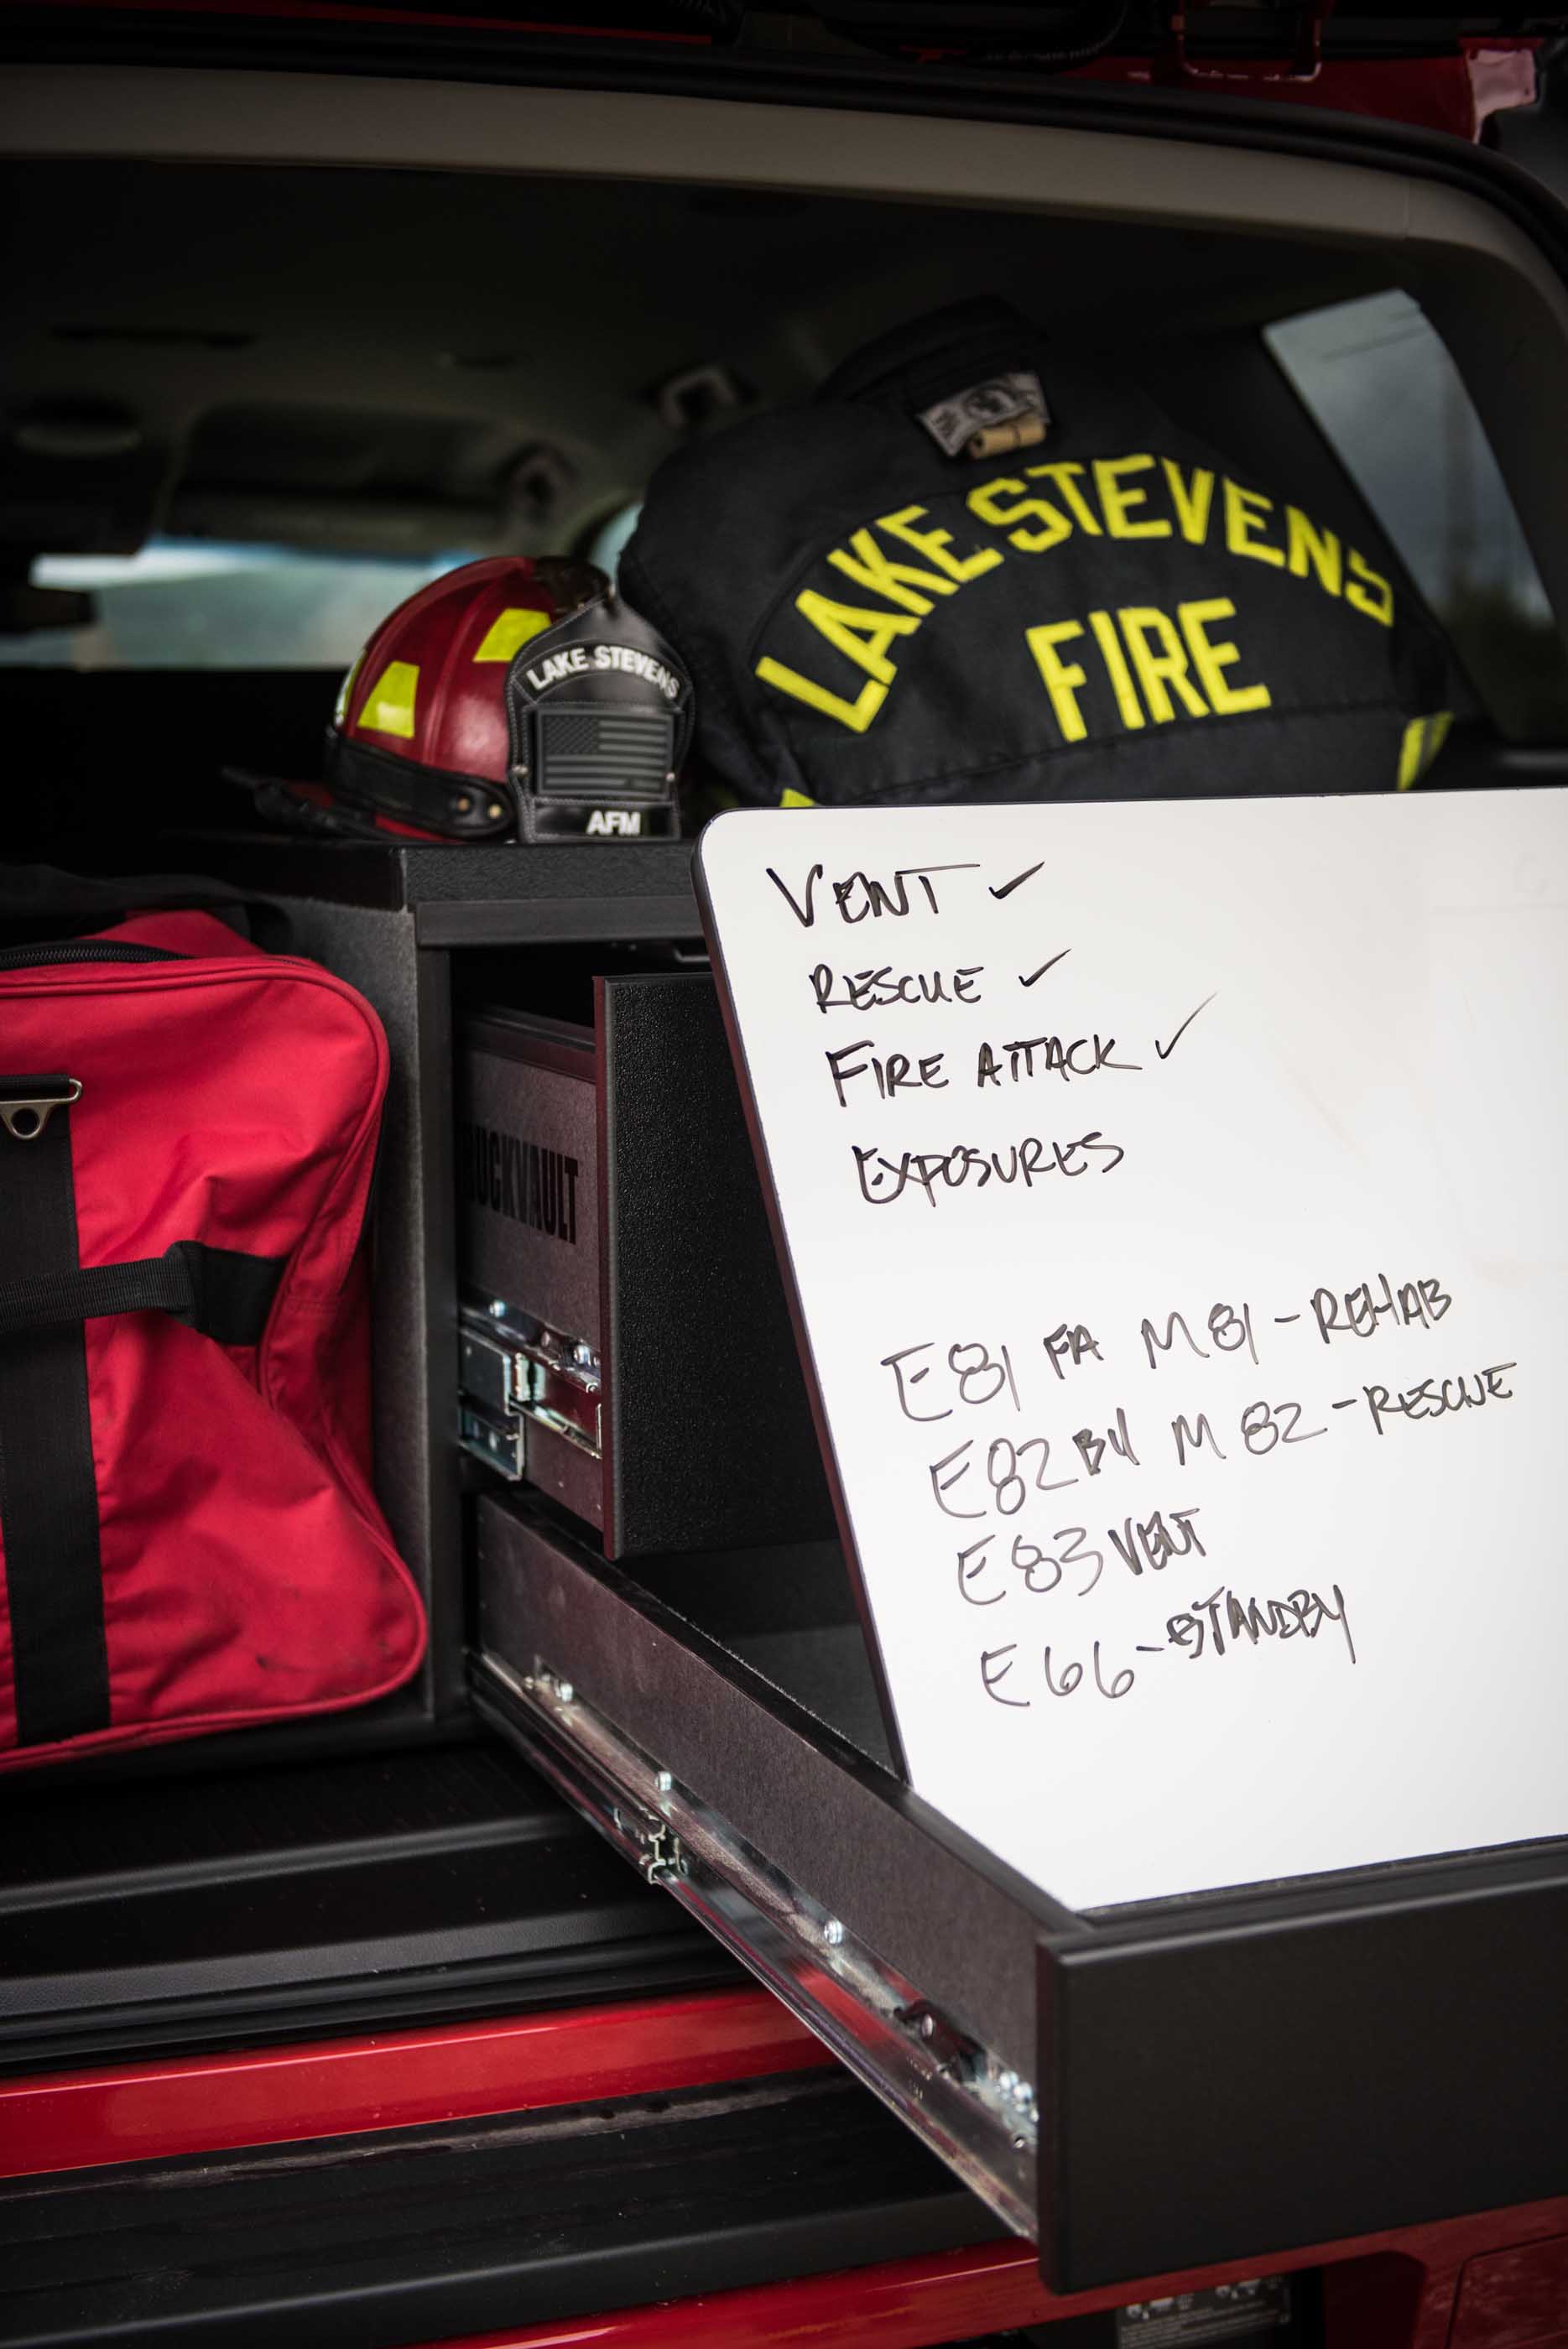 LAKE STEVENS
FIRE
LAKE STEVENS
AFM
VENT ✓
RESCUE ✓
FIRE ATTACK ✓
EXPOSURES
E81 FA M81-REHAB
E82 BU M82-RESCUE
E83 VENT
E66-STANDBY
UCKVAULT